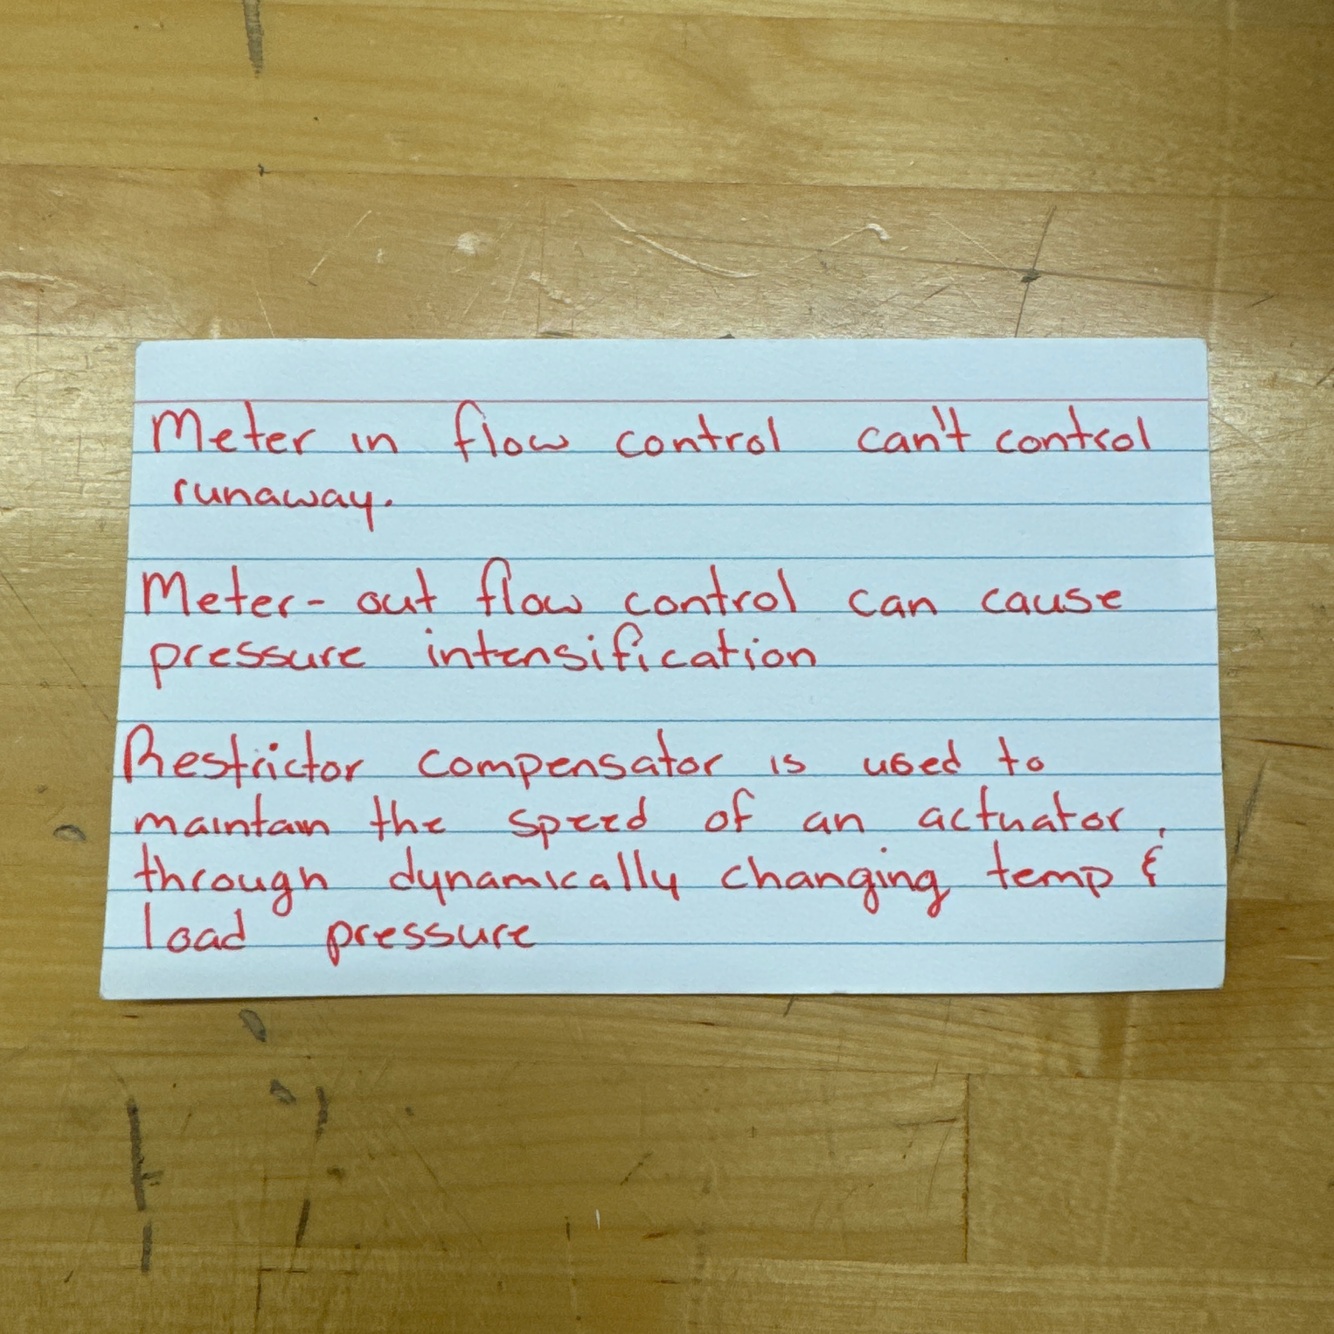 Meter in flow control can't control
runaway.
Meter-out flow control can cause
pressure intensification
Restrictor compensator is used to
maintain the speed of an actuator,
through dynamically changing temp &
load pressure